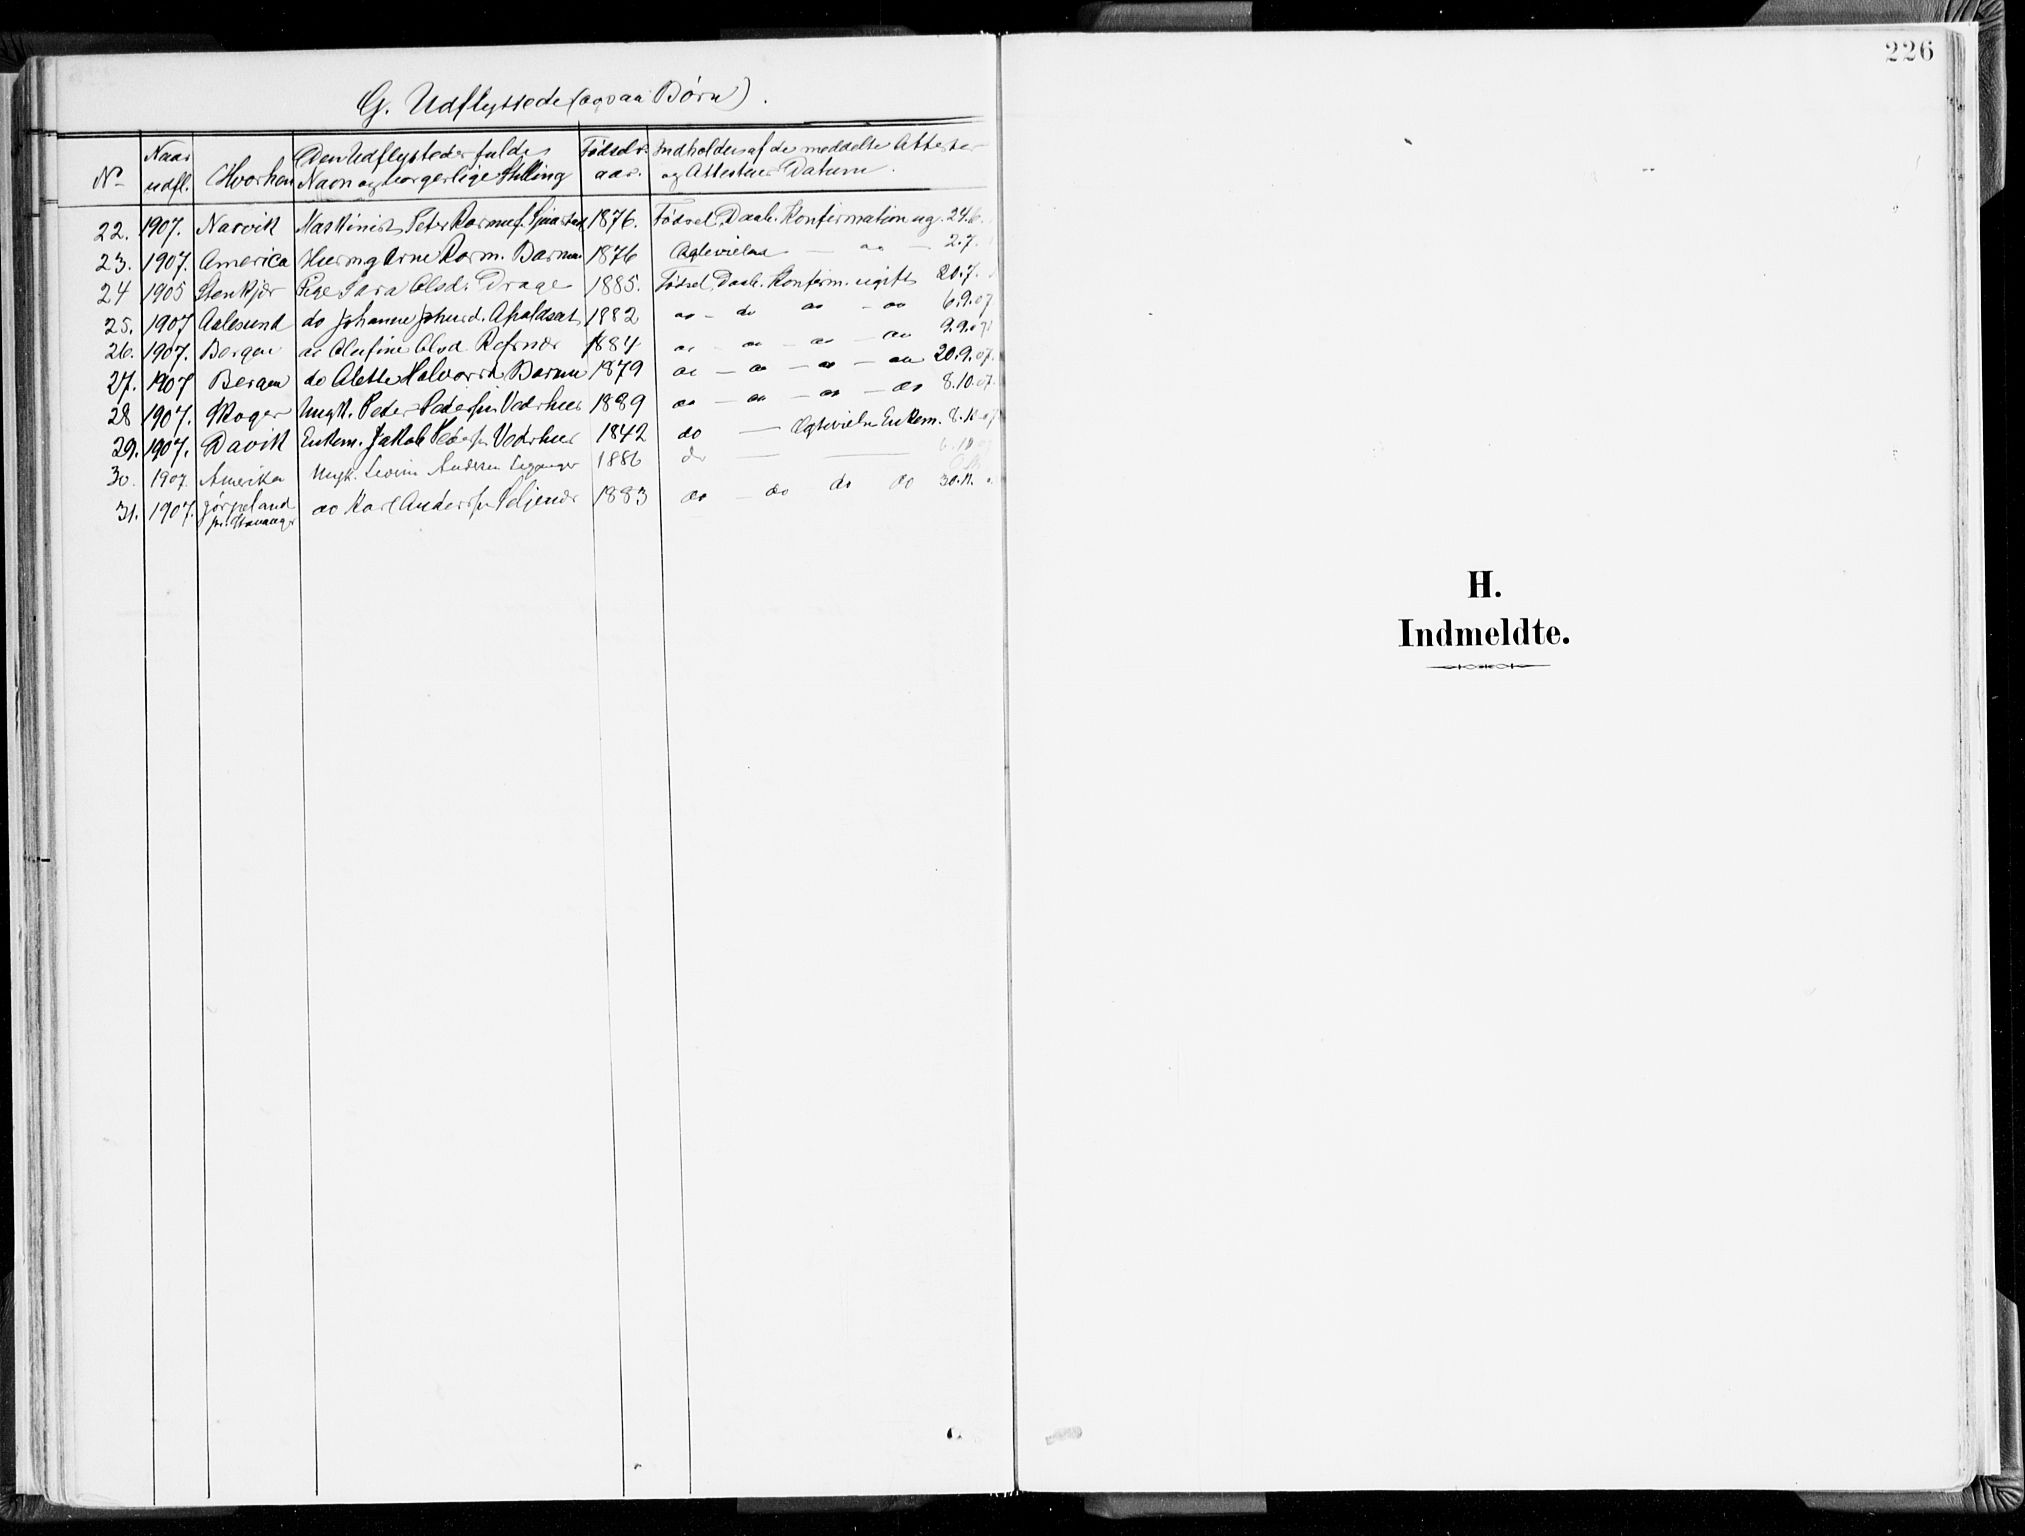 G. Udflyttede (ogsaa Børn).
No Naar udfl. Hvorhen Den Udflyttedes fulde Navn og borgerlige Stilling Fødselsaar. Indholdet af de meddelte Attester og Attestens Datum.
22. 1907. Narvik Maskinist Peter Rasmusf. 1876. Fødsel, Daab. Konfirmation ug. 24.6.
23. 1907. America Arne Rasm. Barmen 1876 Egtevielse — do — 2.7.
24 1905 Stenkjær Pige Sara Olsd. Drage 1885. Fødsel, Daab. Konfirm. ugift 20.7.
25. 1907 Aalesund do Johanne Johnsd. Apaldsæt 1882 do — do do — do 6.9.07
26. 1907. Bergen do Olufine Olsd. Refsnes 1884 do — do — do — do 9.9.07
27. 1907 Bergen do Alette Halvorsd. Barmen 1879 do — do — do — do 20.9.07.
28 1907. Skoger Ungk. Peder Pedersen Vedvik 1889 do — do — do — do 8.10.07.
29. 1907. Davik Enkem. Jakob 1842 do — Egtevielse Enkem.
30. 1907. Amerika Ungk. Andersen 1886 do
31. 1907. Jørpeland pr. Stavanger do Karl Andersen 1883 do — do do do 30.11.
226
H.
Indmeldte.